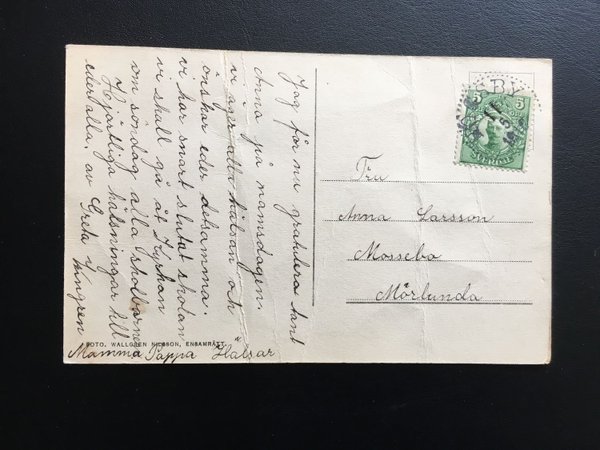 Jag får nu gratulera tant
Anna på namnsdagen.
vi äger alla hälsan och
önskar eder detsamma.
vi har snart slutat skolan
vi skall gå åt Kyrkan
om söndag alla skolbarne
Hjärtliga hälsningar till
eder alla, av Greta
Mamma Pappa Hälsar
FOTO. WALLGREN NILSSON, ENSAMRÄTT.
SBY
5
5
SVERIGE
Fru
Anna Larsson
Mossebo
Mörlunda